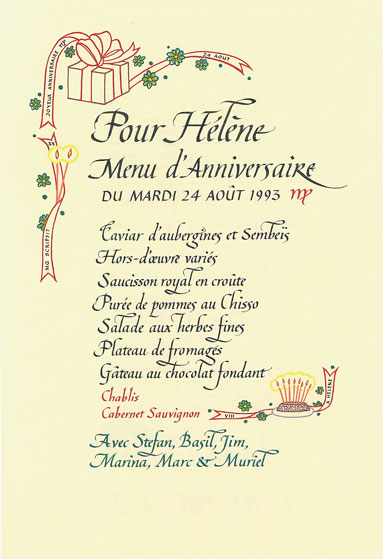 JOYEUX ANNIVERSAIRE
24 AOUT
Pour Hélène
Menu d'Anniversaire
DU MARDI 24 AOÛT 1993
Caviar d'aubergines et Sembeïs
Hors-d'œuvre variés
Saucisson royal en croûte
Purée de pommes au Chisso
Salade aux herbes fines
Plateau de fromages
Gâteau au chocolat fondant
Chablis
Cabernet Sauvignon
VIII
A HÉLÈNE
Avec Stefan, Basil, Jim,
Marina, Marc & Muriel
MQ SCRIPSIT